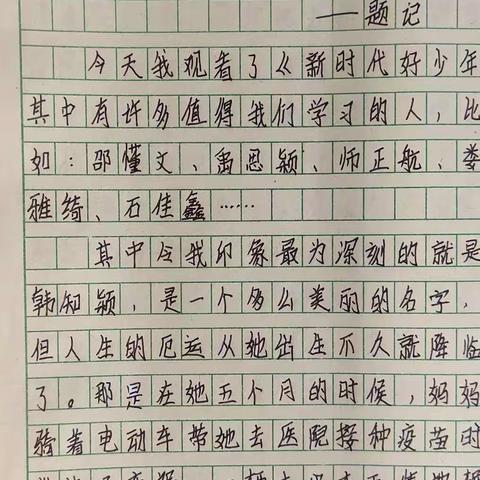 ——题记
今天我观看了《新时代好少年
其中有许多值得我们学习的人，比
如：邵懂文、禹恩颖、师正航、娄
雅绮、石佳鑫……
其中令我印象最为深刻的就是
韩知颖，是一个多么美丽的名字，
但人生的厄运从她出生不久就降临
了。那是在她五个月的时候，妈妈
骑着电动车带她去医院接种疫苗时